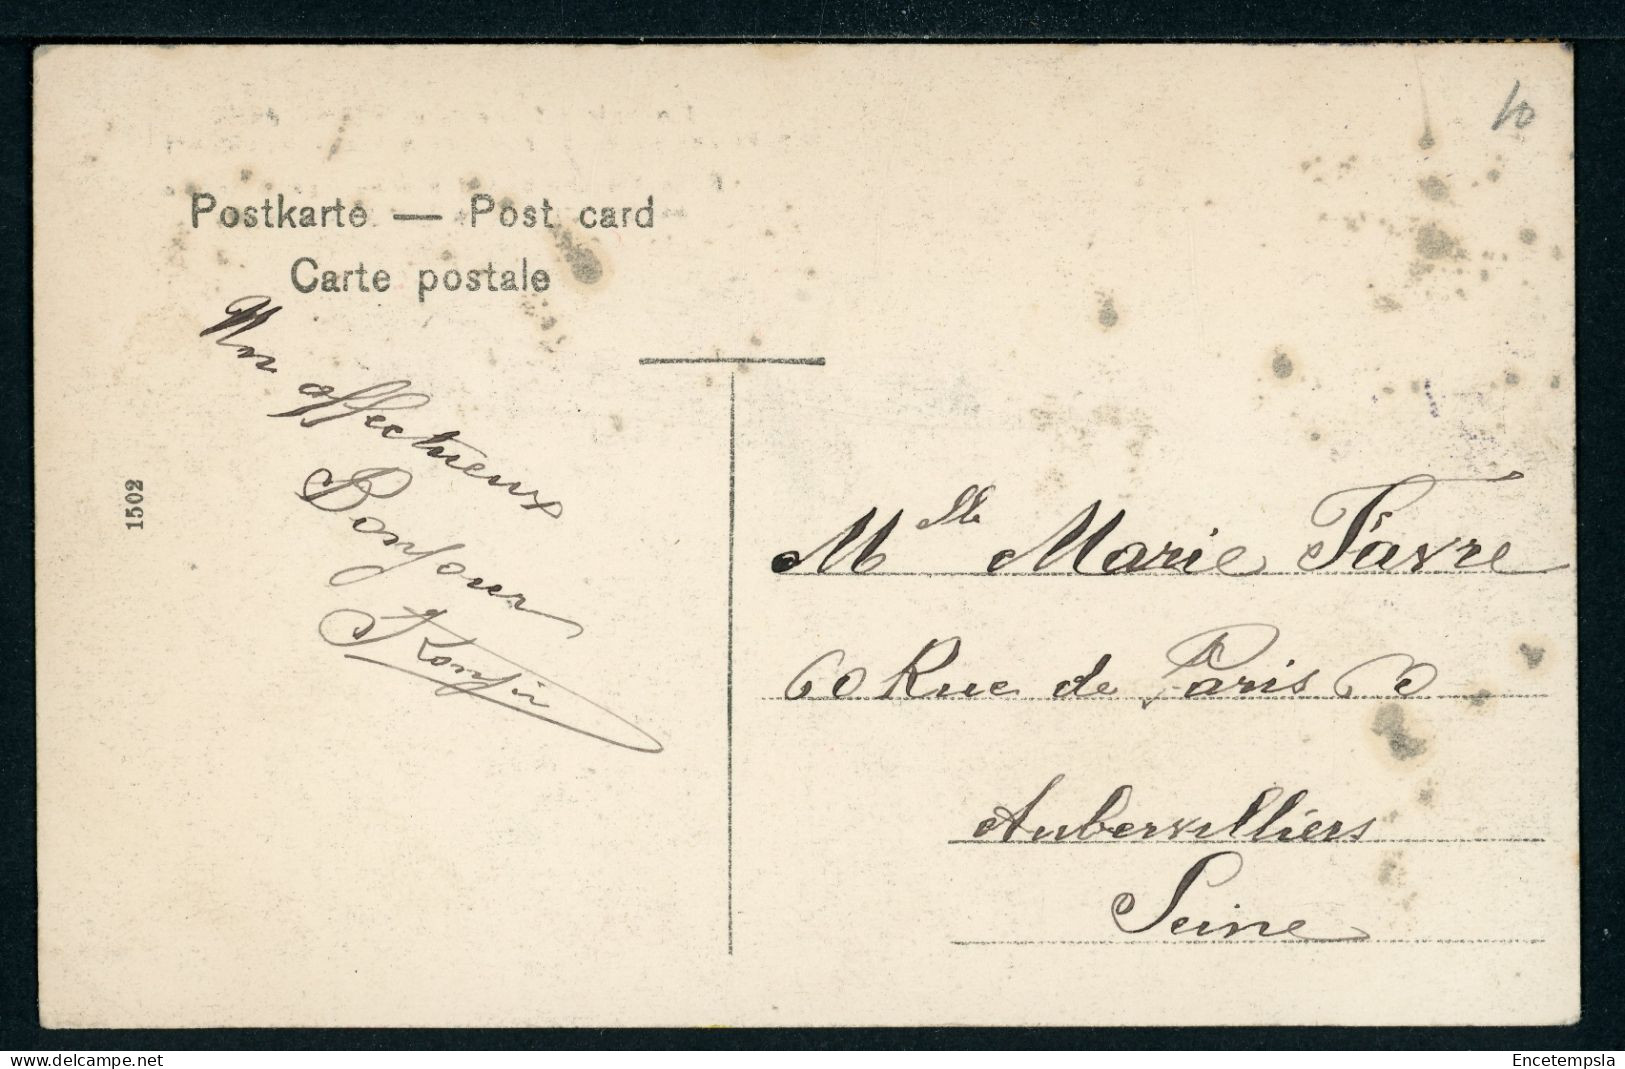 10
Postkarte — Post card
Carte postale
Un
affectueux
Bonjour
1502
Mlle Marie Favre
60 Rue de Paris 60
Aubervilliers
Seine
delcampe.net
Encetempsla